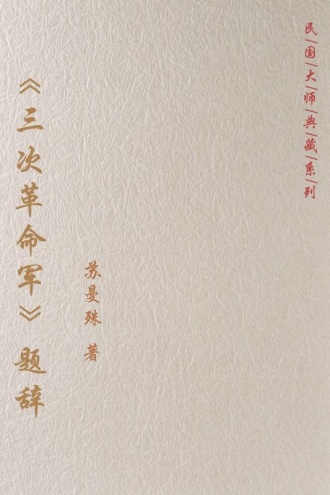 民国大师典藏系列
苏曼殊 著
《三次革命军》题辞